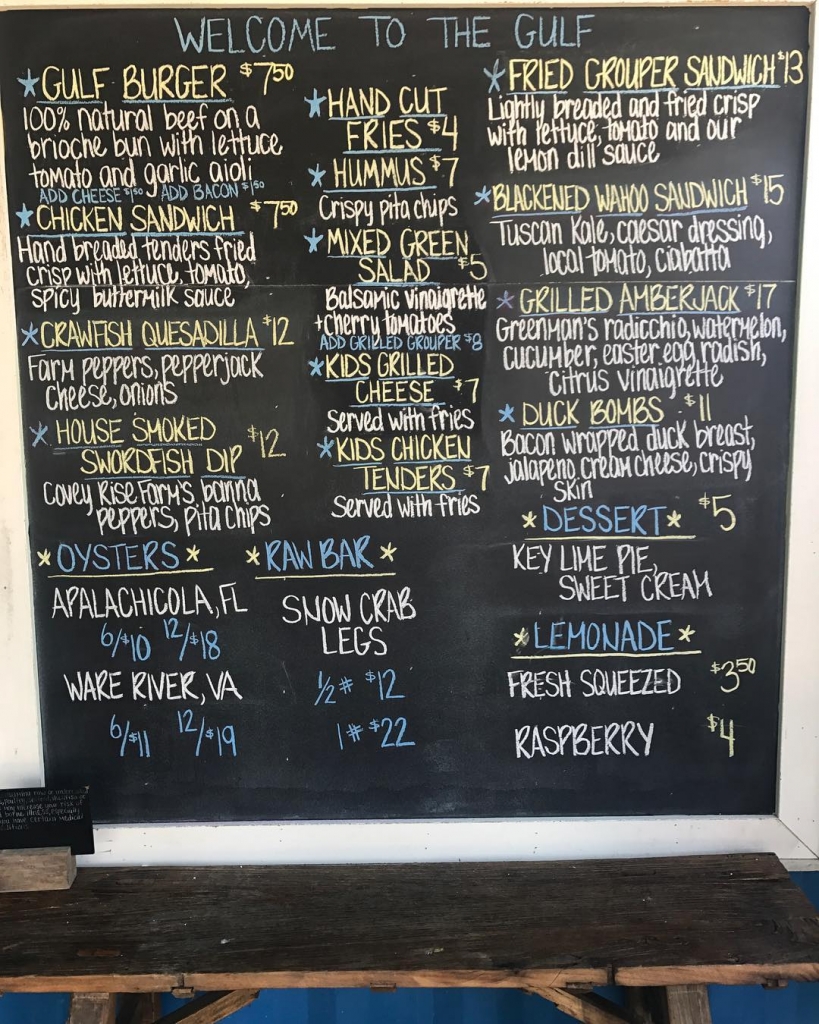 WELCOME TO THE GULF
*GULF BURGER $7.50
100% natural beef on a
brioche bun with lettuce
tomato and garlic aioli
ADD CHEESE $1.50 ADD BACON $1.50
*CHICKEN SANDWICH $7.50
Hand breaded tenders fried
crisp with lettuce, tomato,
spicy buttermilk sauce
*CRAWFISH QUESADILLA $12
Farm peppers, pepperjack
cheese, onions
*HOUSE SMOKED
SWORDFISH DIP $12
Covey Rise Farm's banna
peppers, pita chips
*HAND CUT
FRIES $4
*HUMMUS $7
Crispy pita chips
*MIXED GREEN
SALAD $5
Balsamic vinaigrette
+cherry tomatoes
ADD GRILLED GROUPER $8
*KIDS GRILLED
CHEESE $7
Served with fries
*KIDS CHICKEN
TENDERS $7
Served with fries
*FRIED GROUPER SANDWICH $13
Lightly breaded and fried crisp
with lettuce, tomato and our
lemon dill sauce
*BLACKENED WAHOO SANDWICH $15
Tuscan Kale, caesar dressing,
local tomato, ciabatta
*GRILLED AMBERJACK $17
Greenman's radicchio, watermelon,
cucumber, easter egg radish,
citrus vinaigrette
*DUCK BOMBS $11
Bacon wrapped duck breast,
jalapeno cream cheese, crispy
skin
*OYSTERS*
APALACHICOLA, FL
6/$10 12/$18
WARE RIVER, VA
6/$11 12/$19
*RAW BAR*
SNOW CRAB
LEGS
1/2# $12
1# $22
*DESSERT* $5
KEY LIME PIE,
SWEET CREAM
*LEMONADE*
FRESH SQUEEZED $3.50
RASPBERRY $4